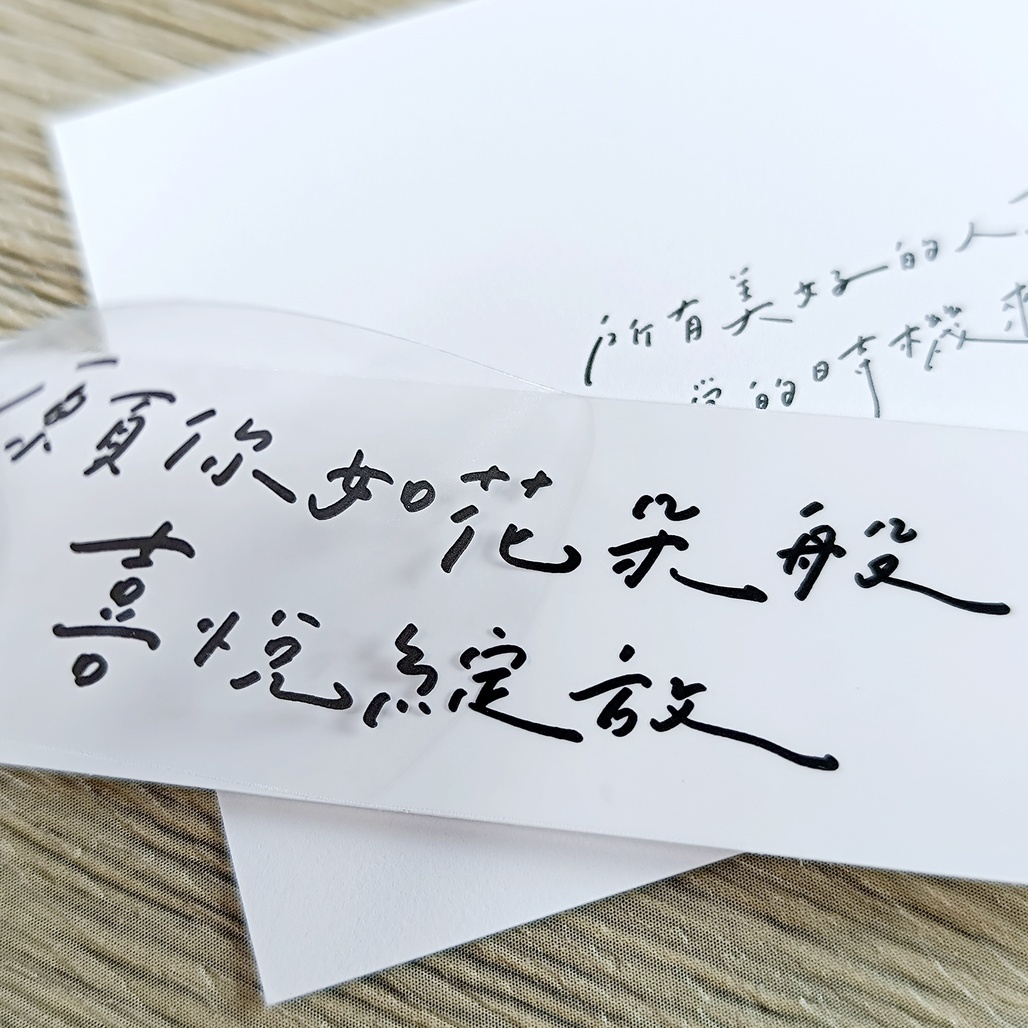 所有美好的人
的時機來
願你如花朵般
喜悅綻放